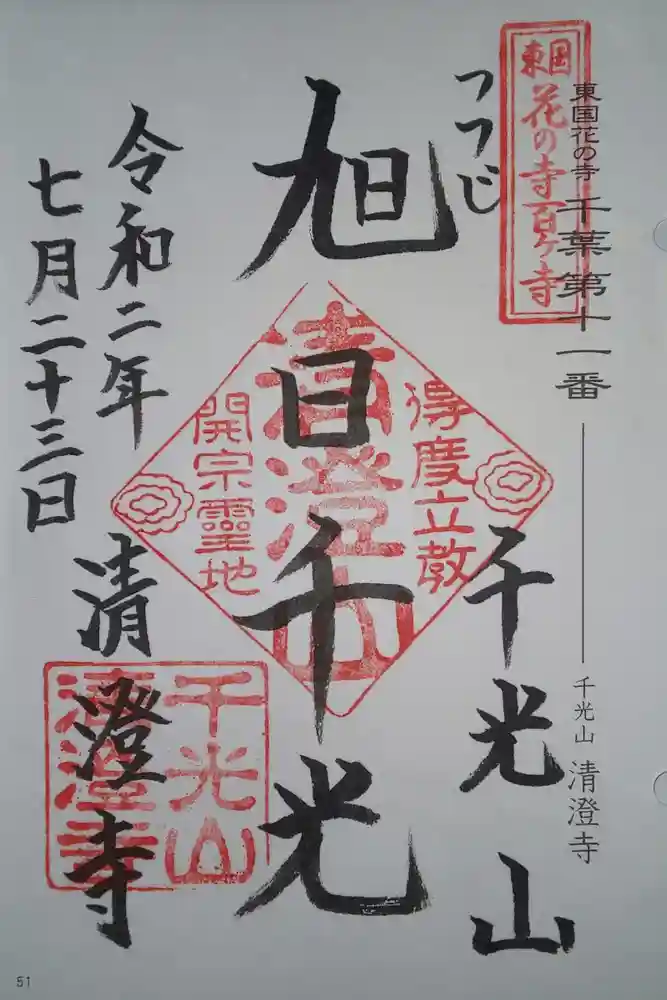 東国花の寺 千葉第十一番
千光山 清澄寺
東国
花の寺百ヶ寺
つつじ
千光山
旭日千光
清澄山
得度立教
開宗靈地
令和二年
七月二十三日
清澄寺
千光山
清澄寺
51